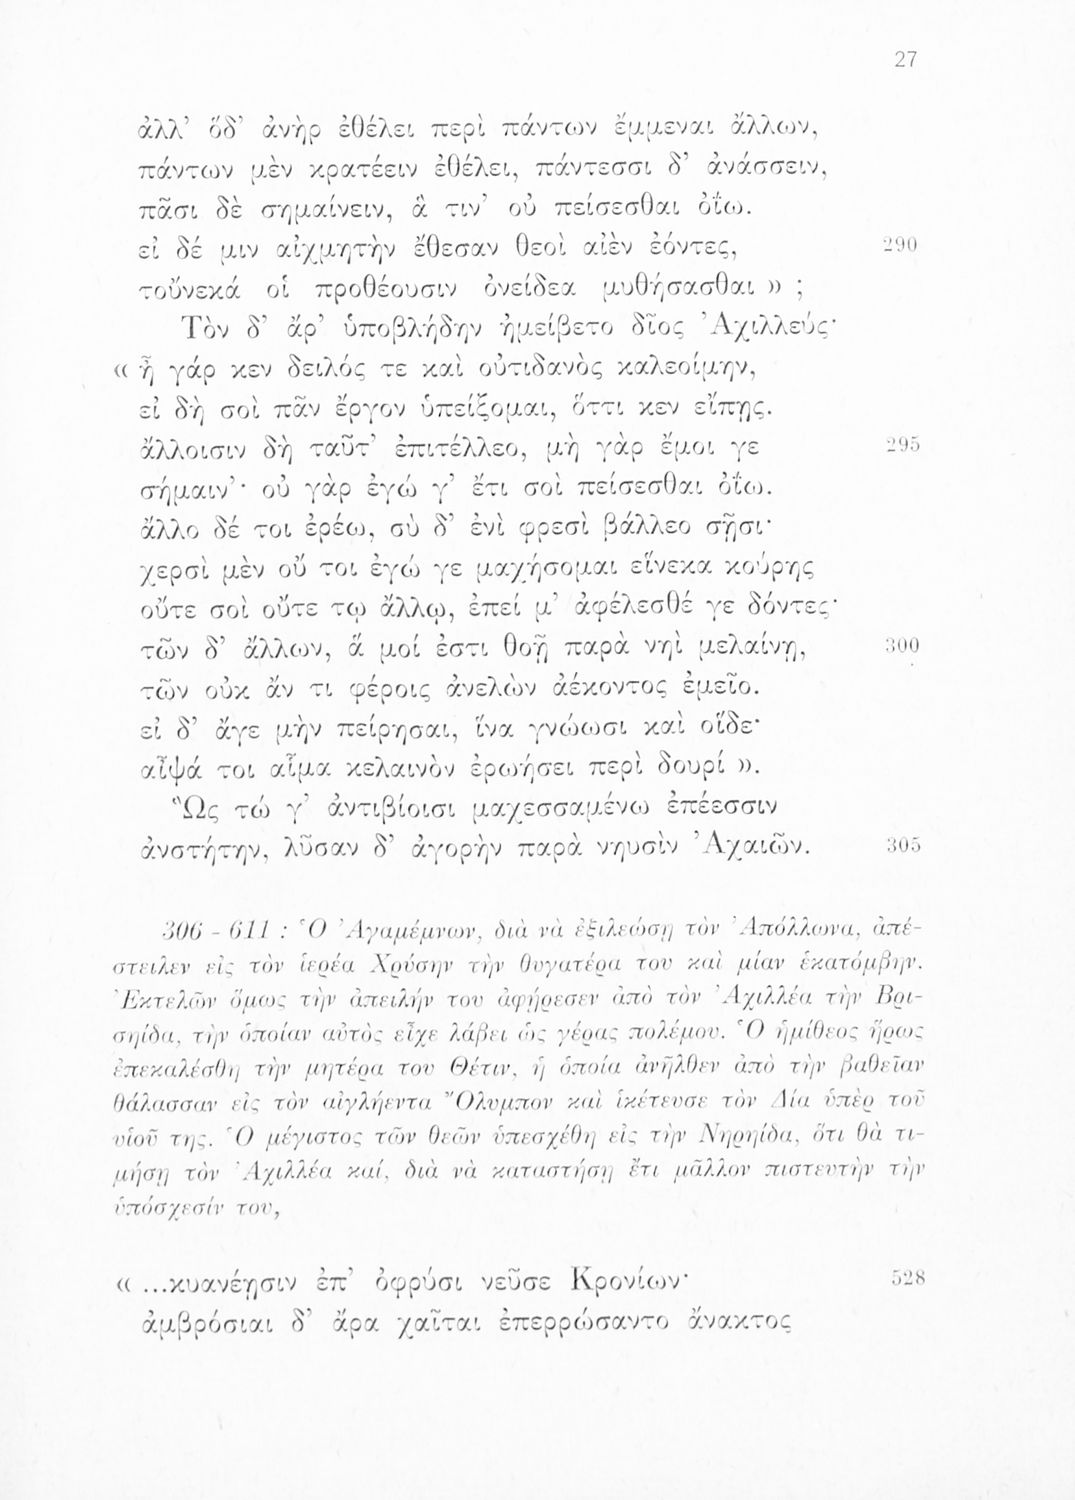 27
ἀλλ’ ὅδ’ ἀνὴρ ἐθέλει περὶ πάντων ἔμμεναι ἄλλων,
πάντων μὲν κρατέειν ἐθέλει, πάντεσσι δ’ ἀνάσσειν,
πᾶσι δὲ σημαίνειν, ἅ τιν’ οὐ πείσεσθαι ὀΐω.
εἰ δέ μιν αἰχμητὴν ἔθεσαν θεοὶ αἰὲν ἐόντες, 290
τοὔνεκά οἱ προθέουσιν ὀνείδεα μυθήσασθαι » ;
Τὸν δ’ ἄρ’ ὑποβλήδην ἠμείβετο δῖος Ἀχιλλεύς·
« ἦ γάρ κεν δειλός τε καὶ οὐτιδανὸς καλεοίμην,
εἰ δὴ σοὶ πᾶν ἔργον ὑπείξομαι, ὅττι κεν εἴπῃς.
ἄλλοισιν δὴ ταῦτ’ ἐπιτέλλεο, μὴ γὰρ ἔμοι γε 295
σήμαιν’· οὐ γὰρ ἐγώ γ’ ἔτι σοὶ πείσεσθαι ὀΐω.
ἄλλο δέ τοι ἐρέω, σὺ δ’ ἐνὶ φρεσὶ βάλλεο σῇσι·
χερσὶ μὲν οὔ τοι ἐγώ γε μαχήσομαι εἵνεκα κούρης
οὔτε σοὶ οὔτε τῳ ἄλλῳ, ἐπεί μ’ ἀφέλεσθέ γε δόντες·
τῶν δ’ ἄλλων, ἅ μοί ἐστι θοῇ παρὰ νηὶ μελαίνῃ, 300
τῶν οὐκ ἄν τι φέροις ἀνελὼν ἀέκοντος ἐμεῖο.
εἰ δ’ ἄγε μὴν πείρησαι, ἵνα γνώωσι καὶ οἵδε·
αἶψά τοι αἷμα κελαινὸν ἐρωήσει περὶ δουρί ».
Ὣς τώ γ’ ἀντιβίοισι μαχεσσαμένω ἐπέεσσιν
ἀνστήτην, λῦσαν δ’ ἀγορὴν παρὰ νηυσὶν Ἀχαιῶν. 305
306 - 611 : Ὁ Ἀγαμέμνων, διὰ νὰ ἐξιλεώσῃ τὸν Ἀπόλλωνα, ἀπέ-
στειλεν εἰς τὸν ἱερέα Χρύσην τὴν θυγατέρα του καὶ μίαν ἑκατόμβην.
Ἐκτελῶν ὅμως τὴν ἀπειλήν του ἀφῄρεσεν ἀπὸ τὸν Ἀχιλλέα τὴν Βρι-
σηίδα, τὴν ὁποίαν αὐτὸς εἶχε λάβει ὡς γέρας πολέμου. Ὁ ἡμίθεος ἥρως
ἐπεκαλέσθη τὴν μητέρα του Θέτιν, ἡ ὁποία ἀνῆλθεν ἀπὸ τὴν βαθεῖαν
θάλασσαν εἰς τὸν αἰγλήεντα Ὄλυμπον καὶ ἱκέτευσε τὸν Δία ὑπὲρ τοῦ
υἱοῦ της. Ὁ μέγιστος τῶν θεῶν ὑπεσχέθη εἰς τὴν Νηρηίδα, ὅτι θὰ τι-
μήσῃ τὸν Ἀχιλλέα καί, διὰ νὰ καταστήσῃ ἔτι μᾶλλον πιστευτὴν τὴν
ὑπόσχεσίν του,
« ...κυανέῃσιν ἐπ’ ὀφρύσι νεῦσε Κρονίων· 528
ἀμβρόσιαι δ’ ἄρα χαῖται ἐπερρώσαντο ἄνακτος